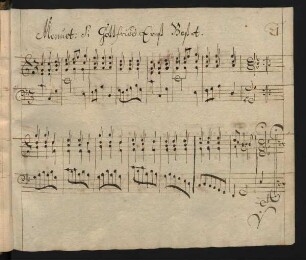 Menuet. di Gottfried Ernst Bestel.
21